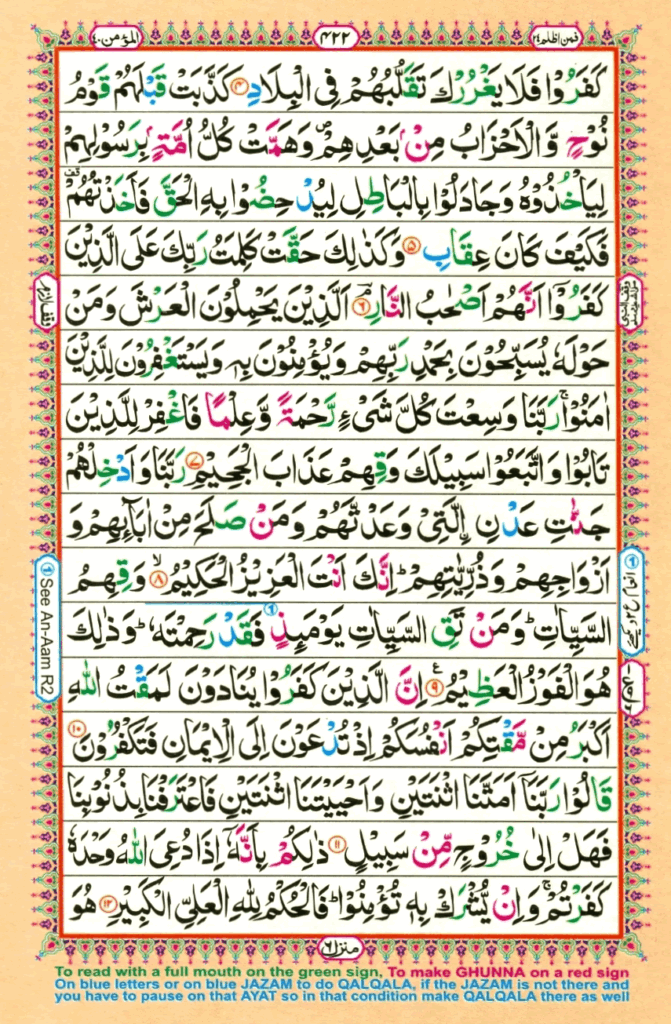 المؤمن ٤٠
٤٢٢
فمن اظلم ٢٤
كَفَرُوْا فَلَا يَغْرُرْكَ تَقَلُّبُهُمْ فِى الْبِلَادِ ۝٤ كَذَّبَتْ قَبْلَهُمْ قَوْمُ
نُوْحٍ وَّالْاَحْزَابُ مِنْۢ بَعْدِهِمْ ۪ وَهَمَّتْ كُلُّ اُمَّةٍۢ بِرَسُوْلِهِمْ
لِيَاْخُذُوْهُ وَجَادَلُوْا بِالْبَاطِلِ لِيُدْحِضُوْا بِهِ الْحَقَّ فَاَخَذْتُهُمْ قف
فَكَيْفَ كَانَ عِقَابِ ۝٥ وَكَذٰلِكَ حَقَّتْ كَلِمَتُ رَبِّكَ عَلَى الَّذِيْنَ
كَفَرُوْۤا اَنَّهُمْ اَصْحٰبُ النَّارِ ۝٦ۘ اَلَّذِيْنَ يَحْمِلُوْنَ الْعَرْشَ وَمَنْ
حَوْلَهٗ يُسَبِّحُوْنَ بِحَمْدِ رَبِّهِمْ وَيُؤْمِنُوْنَ بِهٖ وَيَسْتَغْفِرُوْنَ لِلَّذِيْنَ
اٰمَنُوْا ۚ رَبَّنَا وَسِعْتَ كُلَّ شَىْءٍ رَّحْمَةً وَّعِلْمًا فَاغْفِرْ لِلَّذِيْنَ
تَابُوْا وَاتَّبَعُوْا سَبِيْلَكَ وَقِهِمْ عَذَابَ الْجَحِيْمِ ۝٧ رَبَّنَا وَاَدْخِلْهُمْ
جَنّٰتِ عَدْنِ اِلَّتِىْ وَعَدْتَّهُمْ وَمَنْ صَلَحَ مِنْ اٰبَآئِهِمْ وَ
اَزْوَاجِهِمْ وَذُرِّيّٰتِهِمْ ؕ اِنَّكَ اَنْتَ الْعَزِيْزُ الْحَكِيْمُ ۝٨ۙ وَقِهِمُ
السَّيِّاٰتِ ؕ وَمَنْ تَقِ السَّيِّاٰتِ يَوْمَئِذٍ فَقَدْ رَحِمْتَهٗ ؕ وَذٰلِكَ
هُوَ الْفَوْزُ الْعَظِيْمُ ۝٩ع اِنَّ الَّذِيْنَ كَفَرُوْا يُنَادَوْنَ لَمَقْتُ اللّٰهِ
اَكْبَرُ مِنْ مَّقْتِكُمْ اَنْفُسَكُمْ اِذْ تُدْعَوْنَ اِلَى الْاِيْمَانِ فَتَكْفُرُوْنَ ۝١٠
قَالُوْا رَبَّنَاۤ اَمَتَّنَا اثْنَتَيْنِ وَاَحْيَيْتَنَا اثْنَتَيْنِ فَاعْتَرَفْنَا بِذُنُوْبِنَا
فَهَلْ اِلٰى خُرُوْجٍ مِّنْ سَبِيْلٍ ۝١١ ذٰلِكُمْ بِاَنَّهٗۤ اِذَا دُعِىَ اللّٰهُ وَحْدَهٗ
كَفَرْتُمْ ۚ وَاِنْ يُّشْرَكْ بِهٖ تُؤْمِنُوْا ؕ فَالْحُكْمُ لِلّٰهِ الْعَلِىِّ الْكَبِيْرِ ۝١٢ هُوَ
وقف لازم
① See An-Aam R2
منزل ٦
To read with a full mouth on the green sign, To make GHUNNA on a red sign
On blue letters or on blue JAZAM to do QALQALA, if the JAZAM is not there and
you have to pause on that AYAT so in that condition make QALQALA there as well